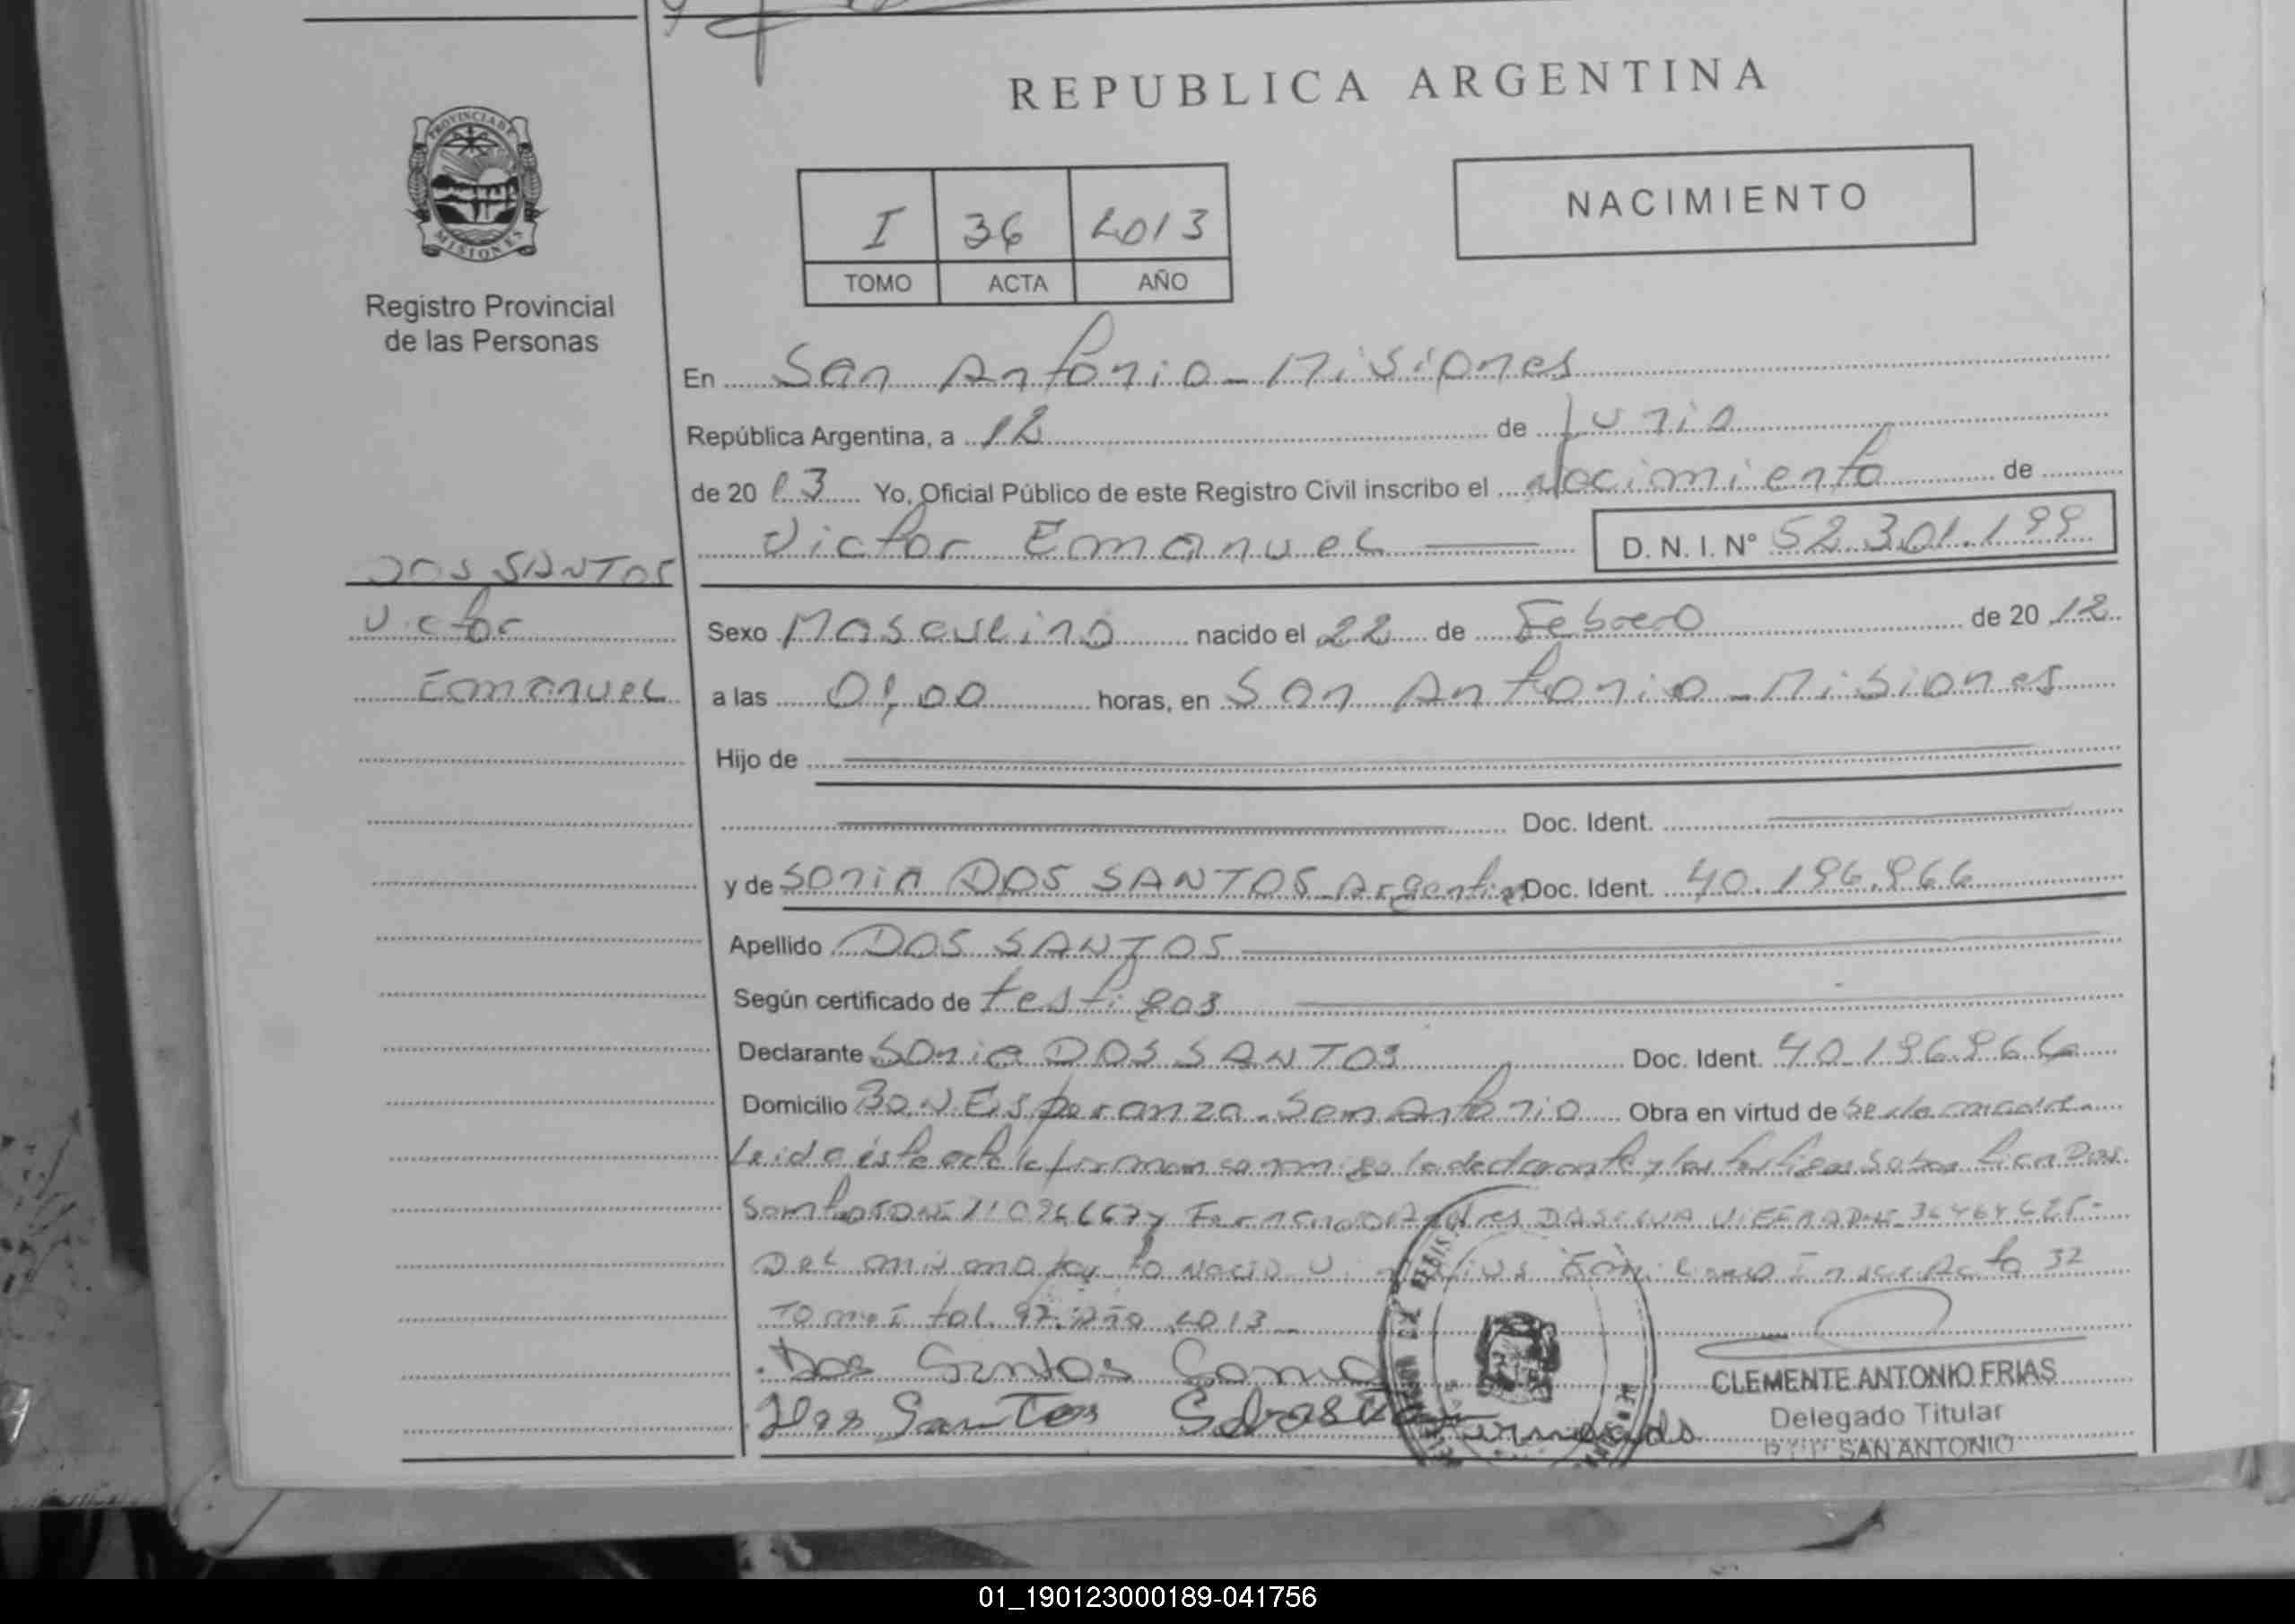 REPUBLICA ARGENTINA
PROVINCIA DE
MISIONES
Registro Provincial
de las Personas
I 36 2013
TOMO ACTA AÑO
NACIMIENTO
En San Antonio - Misiones
República Argentina, a 12 de Junio
de 20 13 Yo, Oficial Público de este Registro Civil inscribo el Nacimiento de
Victor Emanuel D. N. I. Nº 52.301.199
DOS SANTOS
Victor
Emanuel
Sexo Masculino nacido el 22 de Febrero de 20 12
a las 01,00 horas, en San Antonio - Misiones
Hijo de
Doc. Ident.
y de Sonia DOS SANTOS - Argentina Doc. Ident. 40.196.966
Apellido DOS SANTOS
Según certificado de testigos
Declarante Sonia DOS SANTOS Doc. Ident. 40.196.966
Domicilio Esperanza - San Antonio Obra en virtud de Ser la madre
Leido éste acta la firman conmigo la declarante y los testigos Dos
Santos y Fernando
Del mismo Acta 32
Tomo I fol. 97. Año 2013
Dos Santos Sonia
Dos Santos
Fernando
CLEMENTE ANTONIO FRIAS
Delegado Titular
SAN ANTONIO
01_190123000189-041756